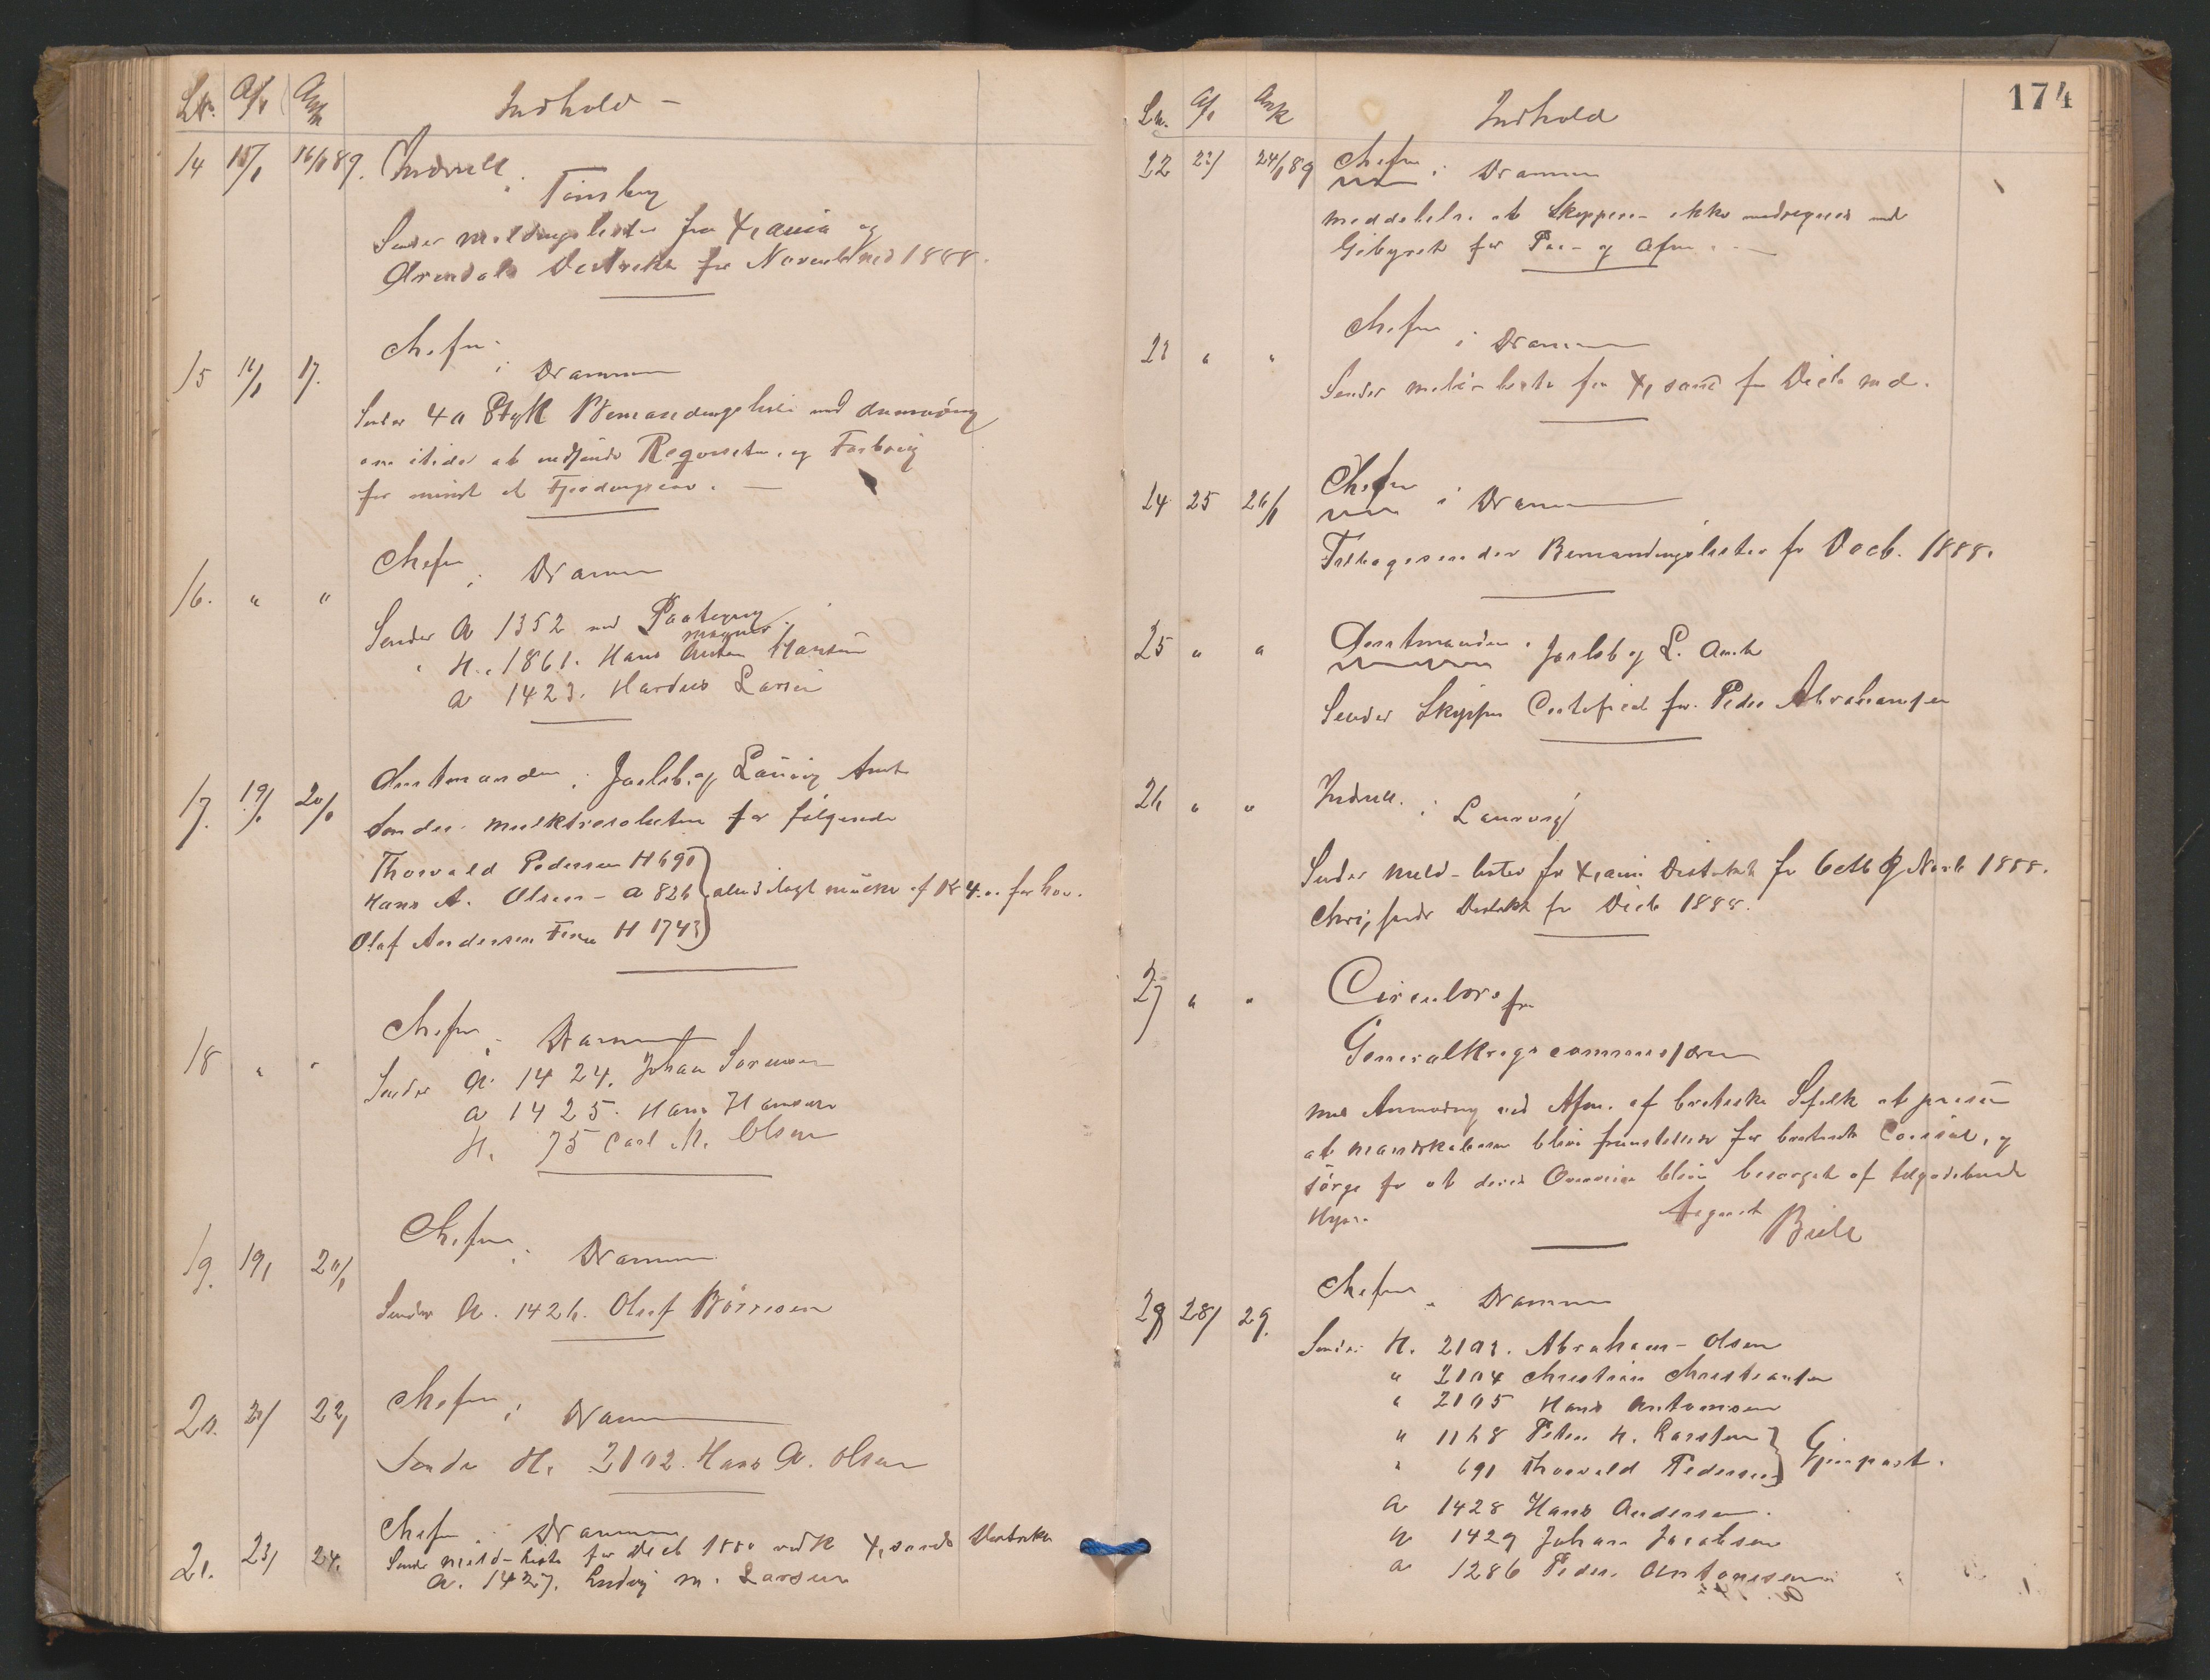 Lb. Afs Ank Indhold –
14 15/1 16/1 89. Indrull.
i Tønsberg
Sender meldingslister fra X,ania og
Arendals Destrikt for November md 1888.
15 16/1 17. Chefen
i Drammen
Sender 40 Styk Bemandingslister med Anmodning
om itide at indsende Reqvisition og Forbrug
for mindst et Fjerdingaar. –
16. " " Chefen i Drammen
Sender A 1352 med Paategning.
" H. 1861. Hans Anton Magnus Hansen
A 1423. Hardus Larsen
17. 19/1 20/1 Amtmanden i Jarlsb. og Laurvig Amt
Sender mulktresolution for følgende
Thorvald Pedersen H 691
Hans A. Olsen – A 826 alle ilagt mulkt af Kr 4.00 for hver.
Olaf Andersen H 1743
18 " " Chefen i Drammen
Sender A. 1424. Johan Sørensen
A 1425. Hans Hansen
H. 75 Carl M. Olsen
19. 19/1 20/1 Chefen i Drammen
Sender A. 1426. Oluf Børresen
20. 21/ 22/ Chefen i Drammen
Sender H. 2102. Hans A. Olsen
21. 23/ 24. Chefen i Drammen
Sender meld-liste for Decb 1888 vedk X,sands Destrikt
A. 1427. Ludvig M. Larsen
174
Lb. Afs Ank Indhold
22 23/ 24/1 89 Chefen i Drammen
meddelelse at Skipperen ikke medregnes ved
Gebyret for Paa- og Afm. –
23 " " Chefen i Drammen
Sender melde liste fra X,sand for Decb md.
24 25 26/1 Chefen i Drammen
Tilbagesender Bemandingslister for Decb. 1888.
25 " " Amtmanden i Jarlsb og L. Amt
Sender Skipper Certificat for Peder Abrahamsen
26 " " Indrull. i Laurvig
Sender meld-lister for X,ania Destrikt for Octb og Novb 1888.
Chri,sands Destrikt for Decb 1888.
27 " " Circulære fra
Generalkrigscommissæren
med Anmodning ved Afm. af britiske Søfolk at paase
at mandskaberne blive fremstillede for britisk Consul, og
sørge for at deres blive besørget af tilgodehavende
Hyre. August Bull
28 28/ 29. Chefen i Drammen
Sender H. 2103. Abraham Olsen
" 2104 Christian Christiansen
" 2105 Hans Antonsen
" 1168 Peter H. Karlsen
" 691 Thorvald Pedersen Gjenpart.
A 1428 Hans Andersen.
A 1429 Johan Jacobsen
A 1286 Peder Antonisen